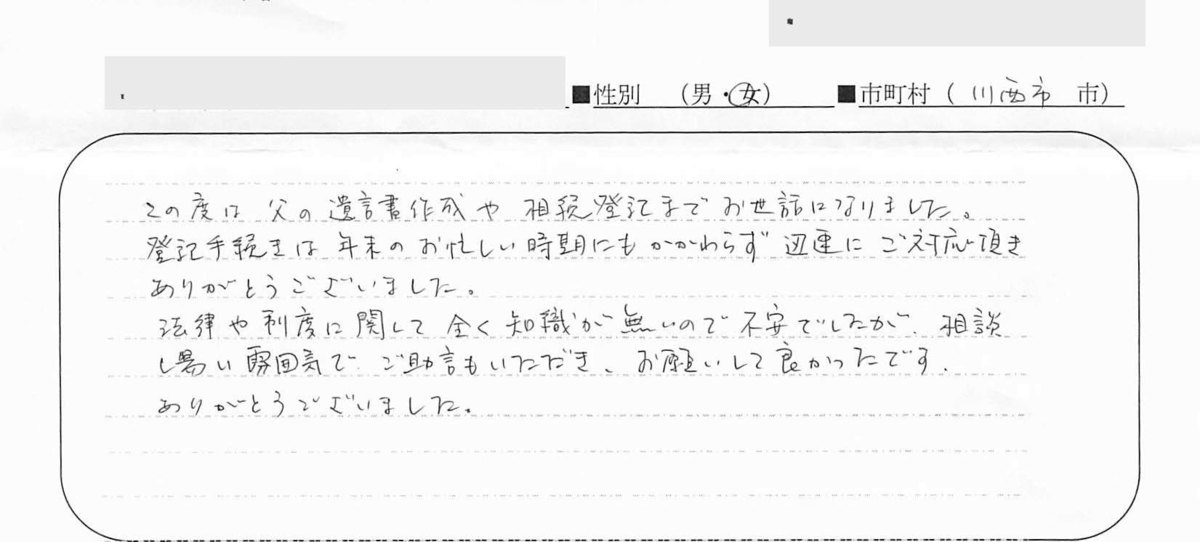 ■性別 (男・女) ■市町村 ( 川西市 市)
この度は 父の 遺言書作成や 相続登記まで お世話になりました。
登記手続きは 年末の お忙しい時期にも かかわらず 迅速に ご対応頂き
ありがとうございました。
法律や 制度に関して 全く 知識が 無いので 不安でしたが、相談
し易い 雰囲気で ご助言もいただき、お願いして 良かったです。
ありがとうございました。